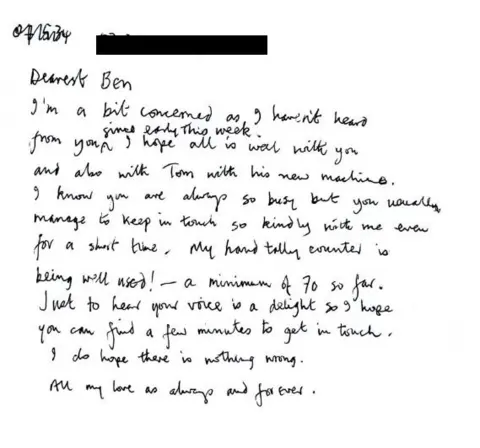 Dearest Ben
I'm a bit concerned as I haven't heard
since early this week.
from you, I hope all is well with you
and also with Tom with his new machine.
I know you are always so busy but you usually
manage to keep in touch so kindly with me even
for a short time. My hand tally counter is
being well used! — a minimum of 70 so far.
Just to hear your voice is a delight so I hope
you can find a few minutes to get in touch.
I do hope there is nothing wrong.
All my love as always and forever.